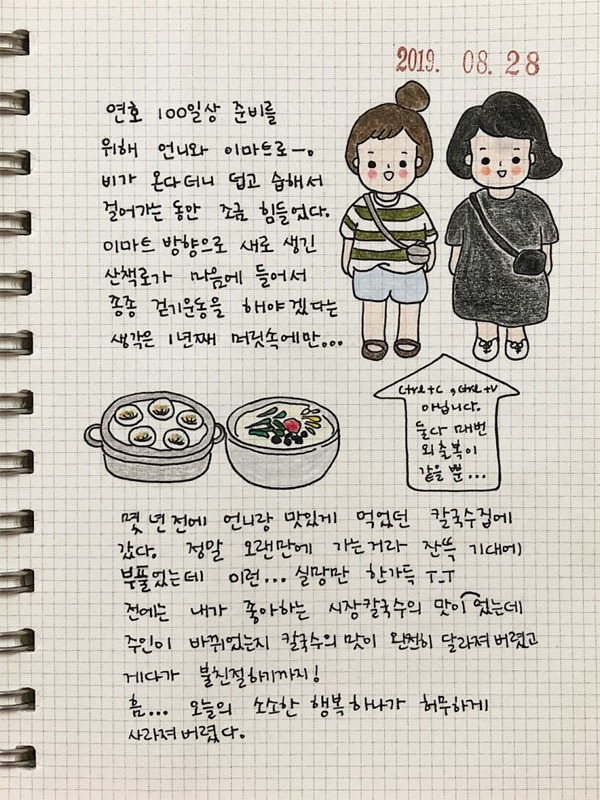 2019. 08. 28
연호 100일상 준비를
위해 언니와 이마트로ㅡ.
비가 온다더니 덥고 습해서
걸어가는 동안 조금 힘들었다.
이마트 방향으로 새로 생긴
산책로가 마음에 들어서
종종 걷기운동을 해야겠다는
생각은 1년째 머릿속에만...
ctrl+c, ctrl+v
아닙니다.
둘다 매번
외출복이
같을 뿐...
몇 년 전에 언니랑 맛있게 먹었던 칼국수집에
갔다. 정말 오랜만에 가는거라 잔뜩 기대에
부풀었는데 이런... 실망만 한가득 T_T
전에는 내가 좋아하는 시장칼국수의 맛이었는데
주인이 바뀌었는지 칼국수의 맛이 완전히 달라져버렸고
게다가 불친절하기까지!
흠... 오늘의 소소한 행복하나가 허무하게
사라져버렸다.